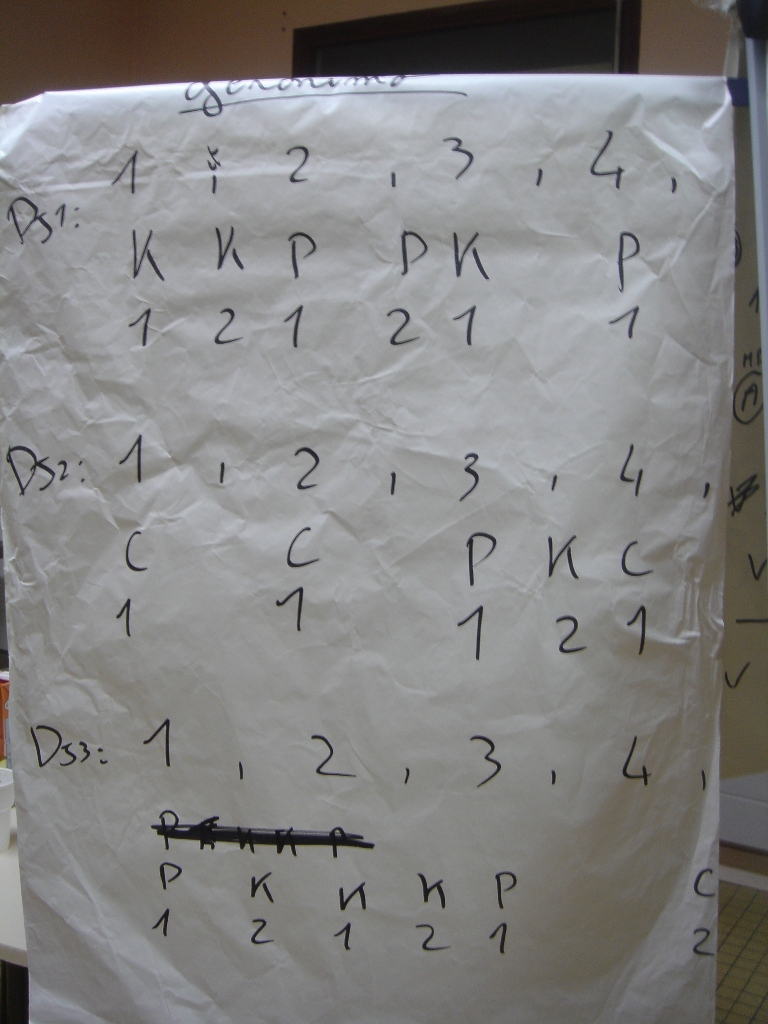 Geronimo
1 , 2 , 3 , 4 ,
DJ1:
K K P P K P
1 2 1 2 1 1
DJ2: 1 , 2 , 3 , 4 ,
C C P K C
1 1 1 2 1
DJ3: 1 , 2 , 3 , 4 ,
P K K K P
P K K K P C
1 2 1 2 1 2